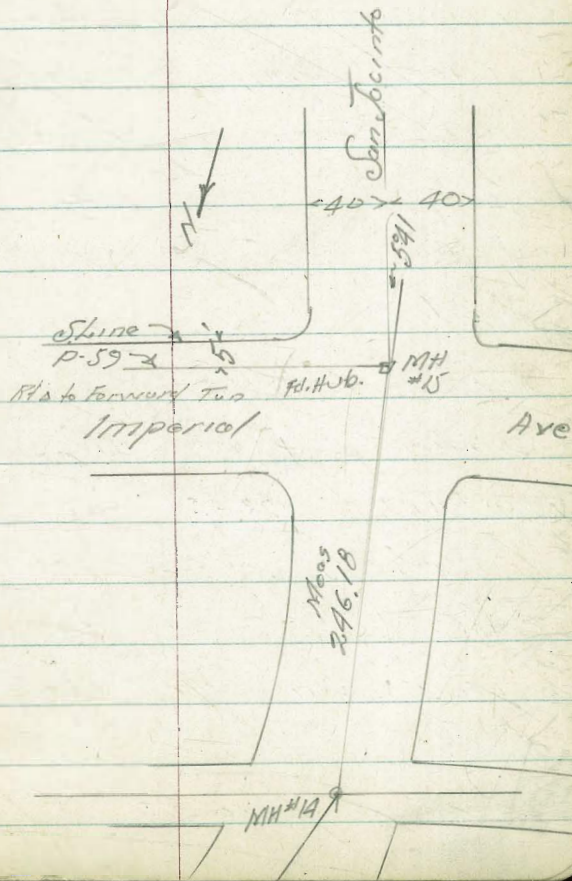 San Jacinto
N
40 40
5°41
S Line
P-59
5'
MH
#15
Fd. Hub.
Rt Δ to Forward Tan
Imperial
Ave
Meas
246.18
MH #14